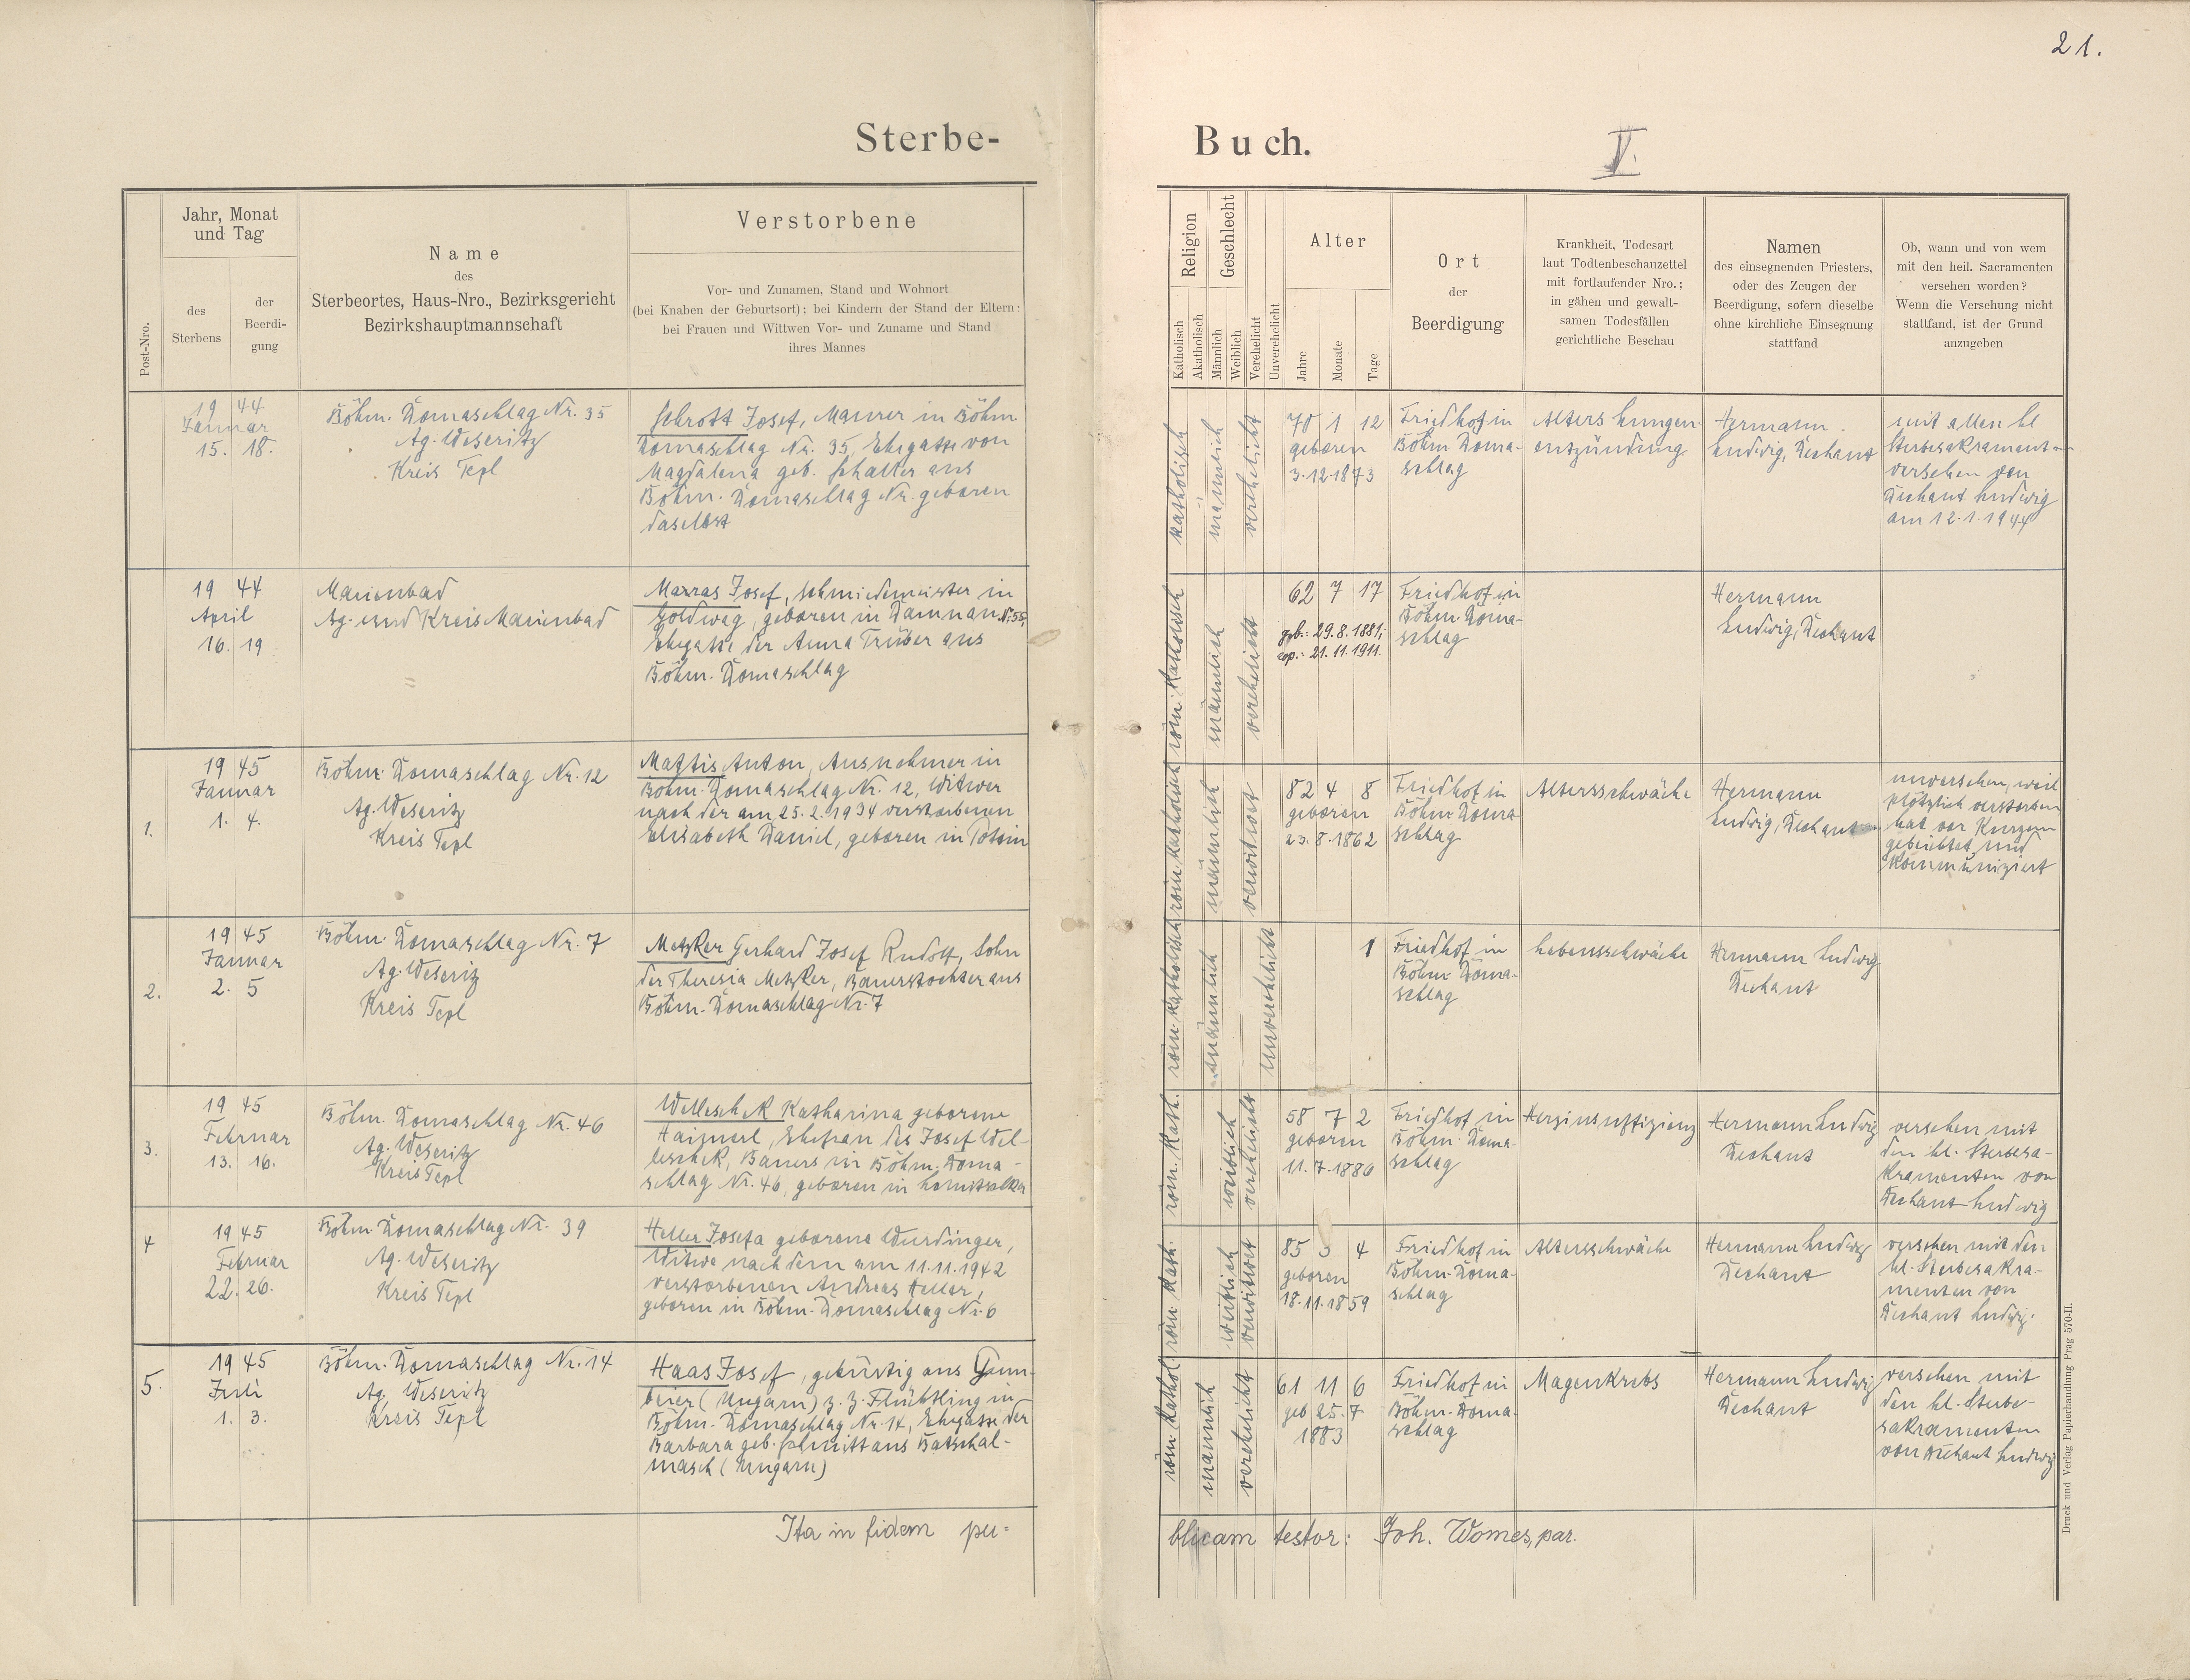 21.
Sterbe-
Buch.
V.
Post-Nro.
Jahr, Monat
und Tag
des
Sterbens
der
Beerdi-
gung
Name
des
Sterbeortes, Haus-Nro., Bezirksgericht
Bezirkshauptmannschaft
Verstorbene
Vor- und Zunamen, Stand und Wohnort
(bei Knaben der Geburtsort); bei Kindern der Stand der Eltern;
bei Frauen und Wittwen Vor- und Zuname und Stand
ihres Mannes
Religion
Katholisch
Akatholisch
Geschlecht
Männlich
Weiblich
Verehelicht
Unverehelicht
Alter
Jahre
Monate
Tage
Ort
der
Beerdigung
Krankheit, Todesart
laut Todtenbeschauzettel
mit fortlaufender Nro.;
in gähen und gewalt-
samen Todesfällen
gerichtliche Beschau
Namen
des einsegnenden Priesters,
oder des Zeugen der
Beerdigung, sofern dieselbe
ohne kirchliche Einsegnung
stattfand
Ob, wann und von wem
mit den heil. Sacramenten
versehen worden?
Wenn die Versehung nicht
stattfand, ist der Grund
anzugeben
19 44
Januar
15. 18.
Böhm. Domaschlag Nr. 35
Ag. Weseritz
Kreis Tepl
Schrott Josef, Maurer in Böhm.
Domaschlag Nr. 35, Ehegatte von
Magdalena geb. Schaller aus
Böhm. Domaschlag Nr. geboren
daselbst
katholisch
männlich
verehelicht
70 1 12
geboren
3.12.1873
Friedhof in
Böhm. Doma-
schlag
Alters Lungen-
entzündung
Hermann
Ludwig, Dechant
mit allen hl
Sterbesakramenten
versehen von
Dechant Ludwig
am 12.1.1944
19 44
April
16. 19
Marienbad
Ag. und Kreis Marienbad
Marras Josef, Schmiedemeister in
Goldwag, geboren in Damnau Nr. 55,
Ehegatte der Anna Trüber aus
Böhm. Domaschlag
röm. katholisch
männlich
verehelicht
62 7 17
geb.: 29.8.1881;
cop.: 21.11.1911.
Friedhof in
Böhm. Doma-
schlag
Hermann
Ludwig, Dechant
1.
19 45
Januar
1. 4.
Böhm. Domaschlag Nr. 12
Ag. Weseritz
Kreis Tepl
Mattis Anton, Ausnehmer in
Böhm. Domaschlag Nr. 12, Witwer
nach der am 25.2.1934 verstorbenen
Elisabeth Daniel, geboren in Potin
röm. katholisch
männlich
verwitwet
82 4 8
geboren
23.8.1862
Friedhof in
Böhm. Doma-
schlag
Altersschwäche
Hermann
Ludwig, Dechant
unversehen, weil
plötzlich verstorben
hat vor Kurzem
gebeichtet und
kommuniziert
2.
19 45
Januar
2. 5
Böhm. Domaschlag Nr. 7
Ag. Weseritz
Kreis Tepl
Metzker Gerhard Josef Rudolf, Sohn
der Theresia Metzker, Bauerstochter aus
Böhm. Domaschlag Nr. 7
röm. katholisch
männlich
unverehelicht
1
Friedhof in
Böhm. Doma-
schlag
Lebensschwäche
Hermann Ludwig
Dechant
3.
19 45
Februar
13. 16.
Böhm. Domaschlag Nr. 46
Ag. Weseritz
Kreis Tepl
Welleschek Katharina geborene
Haiznerl, Ehefrau des Josef Wel-
leschek, Bauers in Böhm. Doma-
schlag Nr. 46, geboren in
röm. kath.
weiblich
verehelicht
58 7 2
geboren
11.7.1886
Friedhof in
Böhm. Doma-
schlag
Herzinsuffizienz
Hermann Ludwig
Dechant
versehen mit
den hl. Sterbesa-
kramenten von
Dechant Ludwig
4
19 45
Februar
22. 26.
Böhm. Domaschlag Nr. 39
Ag. Weseritz
Kreis Tepl
Heller Josefa geborene Wurdinger,
Witwe nach dem am 11.11.1942
verstorbenen Andreas Heller,
geboren in Böhm. Domaschlag Nr. 6
röm. kath.
weiblich
verwitwet
85 3 4
geboren
18.11.1859
Friedhof in
Böhm. Doma-
schlag
Altersschwäche
Hermann Ludwig
Dechant
versehen mit den
hl. Sterbesakra-
menten von
Dechant Ludwig.
5.
19 45
Juli
1. 3.
Böhm. Domaschlag Nr. 14
Ag. Weseritz
Kreis Tepl
Haas Josef, gebürtig aus
(Ungarn) z. Z. Flüchtling in
Böhm. Domaschlag Nr. 14, Ehegatte der
Barbara geb. Schmitt aus Batschal-
masch (Ungarn)
röm. kathol
männlich
verehelicht
61 11 6
geb 25.7
1883
Friedhof in
Böhm. Doma-
schlag
Magenkrebs
Hermann Ludwig
Dechant
versehen mit
den hl. Sterbe-
sakramenten
von Dechant Ludwig
Ita in fidem pu=
blicam testor: Joh. Womes, par.
Druck und Verlag Papierhandlung Prag 570-II.